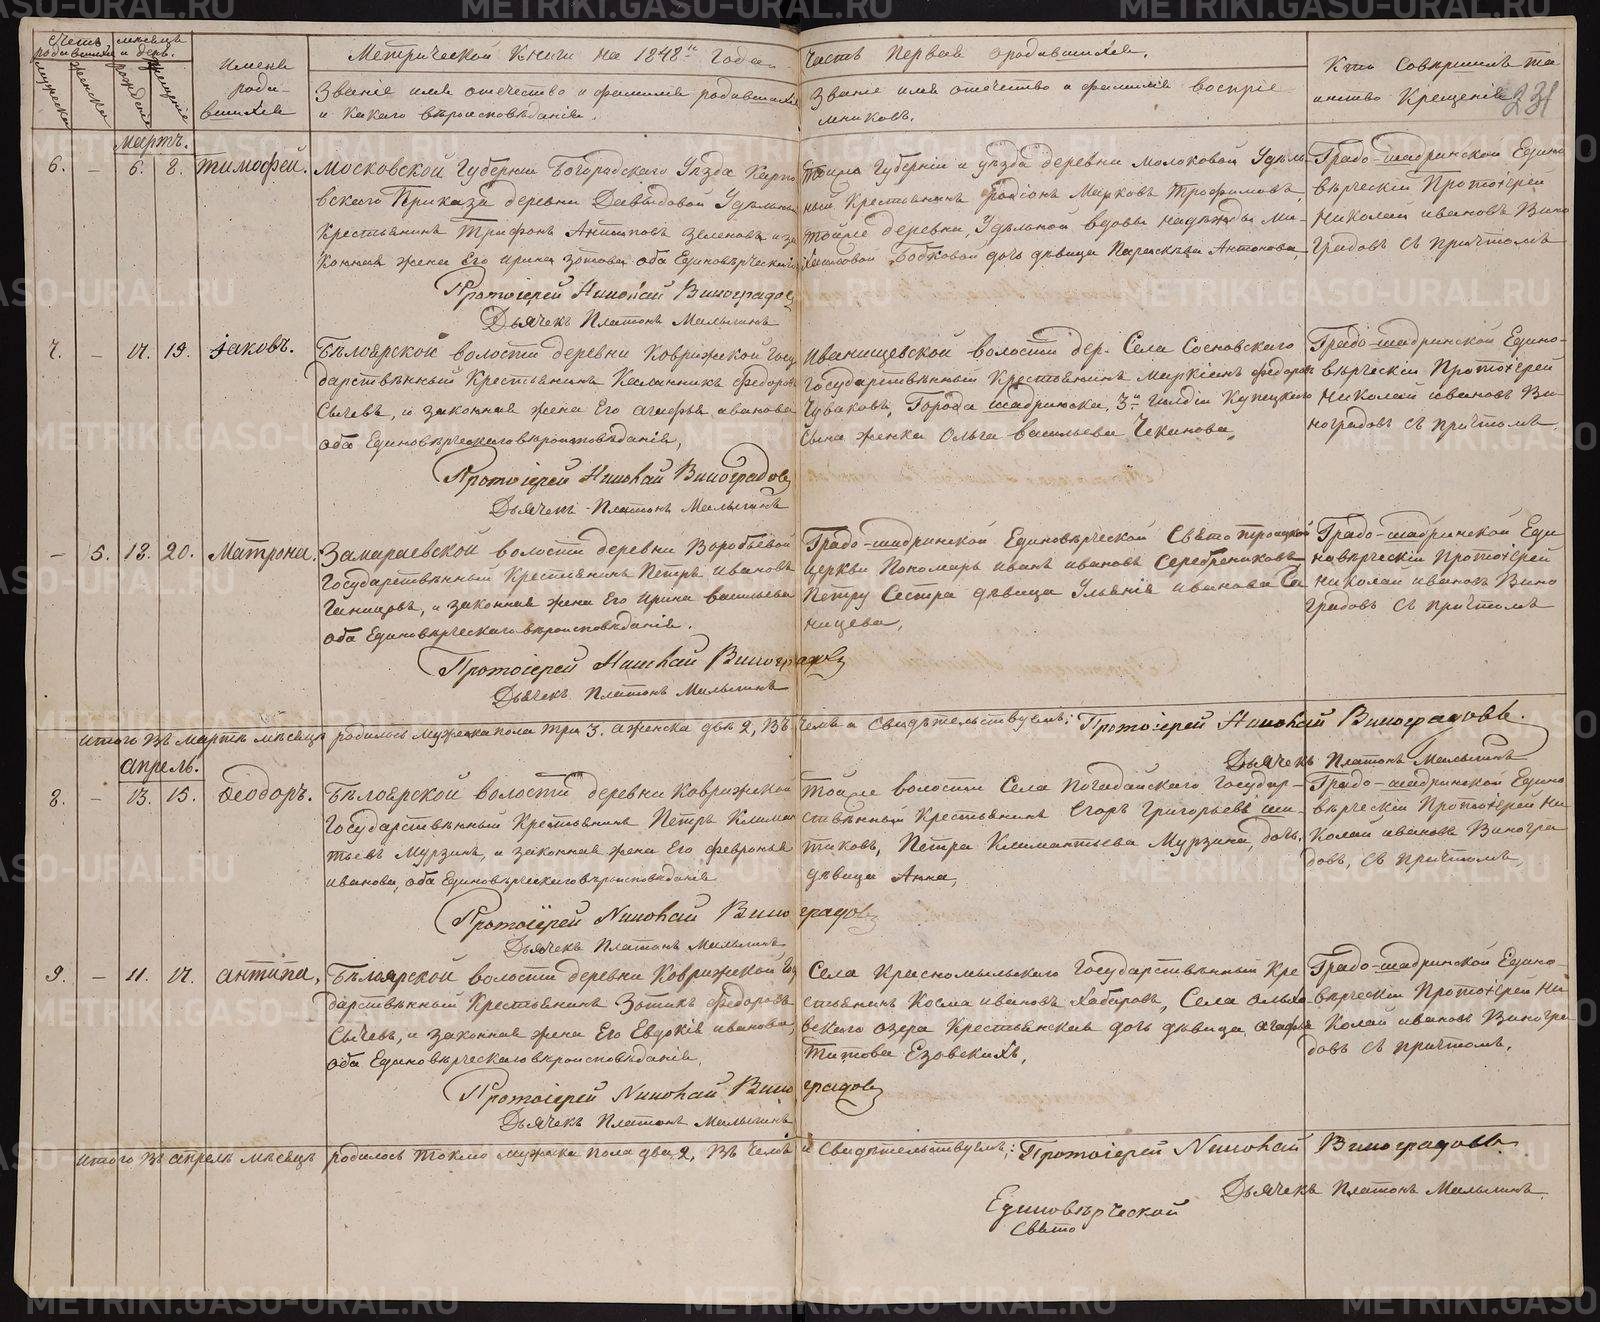 Счетъ родившихся
мѣсяцъ и день.
Имена роди-
вшихся
Метрической Книги на 1848й годъ
часть первая о родившихся.
Кто Совершилъ та
инство Крещенія
231
мужеска
женска
рожденія
крещенія
Званіе имя отечество и фамилія родившихъ
и какого вѣроисповѣданія.
Званіе имя отечество и фамилія воспріе
мниковъ.
Мартъ.
6. – 6. 8. Тимофей.
Московской Губерніи Богородскаго Уѣзда Карпо
вскаго Приказа деревни Давыдовой Удѣльный
Крестьянинъ Трифонъ Антиповъ Зеленовъ и за
конная жена Его Ирина Зотова оба Единовѣрческаго
Протоіерей Николай Виноградовъ
Дьячекъ Платонъ Малыгинъ
Тойже Губерніи и уѣзда деревни Молоковой Удѣль
ный Крестьянинъ Родіонъ Марковъ Трофимовъ,
тойже деревни, Удѣльной вдовы Надежды Ми-
хайловой Бобковой дочь дѣвица Параскева Антонова,
Градо-шадринской Едино
вѣрческій Протоіерей
Николай Ивановъ Вино
градовъ съ причтомъ
7. – 17. 19. Іаковъ.
Бѣлоярской волости деревни Коврижской Госу
дарственный Крестьянинъ Каллиникъ Федоровъ
Сычевъ, и законная жена Его Агафья Иванова
оба Единовѣрческаго вѣроисповѣданія,
Протоіерей Николай Виноградовъ
Дьячекъ Платонъ Малыгинъ
Иванищевской волости дер. Села Сосновскаго
Государственный Крестьянинъ Маркіанъ Федоров
Чубаковъ, Города Шадринска, 3й Гилдіи Купецкаго
Сына женка Ольга Васильева Чекинова,
Градо-шадринской Едино-
вѣрческій Протоіерей
Николай Ивановъ Ви-
ноградовъ съ причтомъ.
– 5. 18. 20. Матрона.
Замараевской волости деревни Воробьевой
Государственный Крестьянинъ Петръ Ивановъ
Ганицовъ, и законная жена Его Ирина Васильева
оба Единовѣрческаго вѣроисповѣданія.
Протоіерей Николай Виноградовъ
Дьячекъ Платонъ Малыгинъ
Градо-шадринской Единовѣрческой Свято троицкой
Церкви Пономарь Иванъ Ивановъ Серебренниковъ
Петру Сестра дѣвица Ульянія Иванова Га
ницева,
Градо-шадринской Еди
новѣрческій Протоіерей
Николай Ивановъ Вино
градовъ съ причтомъ
Итого Въ Мартѣ мѣсяцѣ родилось Мужеска пола Три 3. а женска двѣ 2, Въ чемъ и Свидѣтельствуемъ: Протоіерей Николай Виноградовъ.
Дьячекъ Платонъ Малыгинъ
Апрель.
8. – 13. 15. Ѳеодоръ.
Бѣлоярской волости деревни Коврижской
Государственный Крестьянинъ Петръ Климан
тьевъ Мурзинъ, и законная жена Его Февронья
Иванова, оба Единовѣрческаго вѣроисповѣданія
Протоіерей Николай Виноградовъ
Дьячекъ Платонъ Малыгинъ
Тойже волости Села Погадайскаго Государ-
ственный Крестьянинъ Егоръ Григорьевъ Ши-
тиковъ, Петра Климантьева Мурзина, дочь
дѣвица Анна,
Градо-шадринской Едино
вѣрческій Протоіерей Ни
колай Ивановъ Виногра
довъ, съ причтомъ,
9. – 11. 17. Антипа.
Бѣлоярской волости деревни Коврижской Госу
дарственный Крестьянинъ Зотикъ Федоровъ
Сычевъ, и законная жена Его Евдокія Иванова,
оба Единовѣрческаго вѣроисповѣданія,
Протоіерей Николай Виноградовъ
Дьячекъ Платонъ Малыгинъ
Села Красномыльскаго Государственный Кре
стьянинъ Косма Ивановъ Хабаровъ, Села Ольхо
вскаго озера Крестьянская дочь дѣвица Агафья
Титова Езовскихъ,
Градо-шадринской Едино-
вѣрческій Протоіерей Ни
колай Ивановъ Виногра
довъ съ причтомъ.
Итого Въ Апрелѣ мѣсяцѣ родилось токмо мужска пола два 2, Въ чемъ и Свидѣтельствуемъ: Протоіерей Николай Виноградовъ.
Дьячекъ Платонъ Малыгинъ.
Единовѣрческой
Свято
METRIKI.GASO-URAL.RU